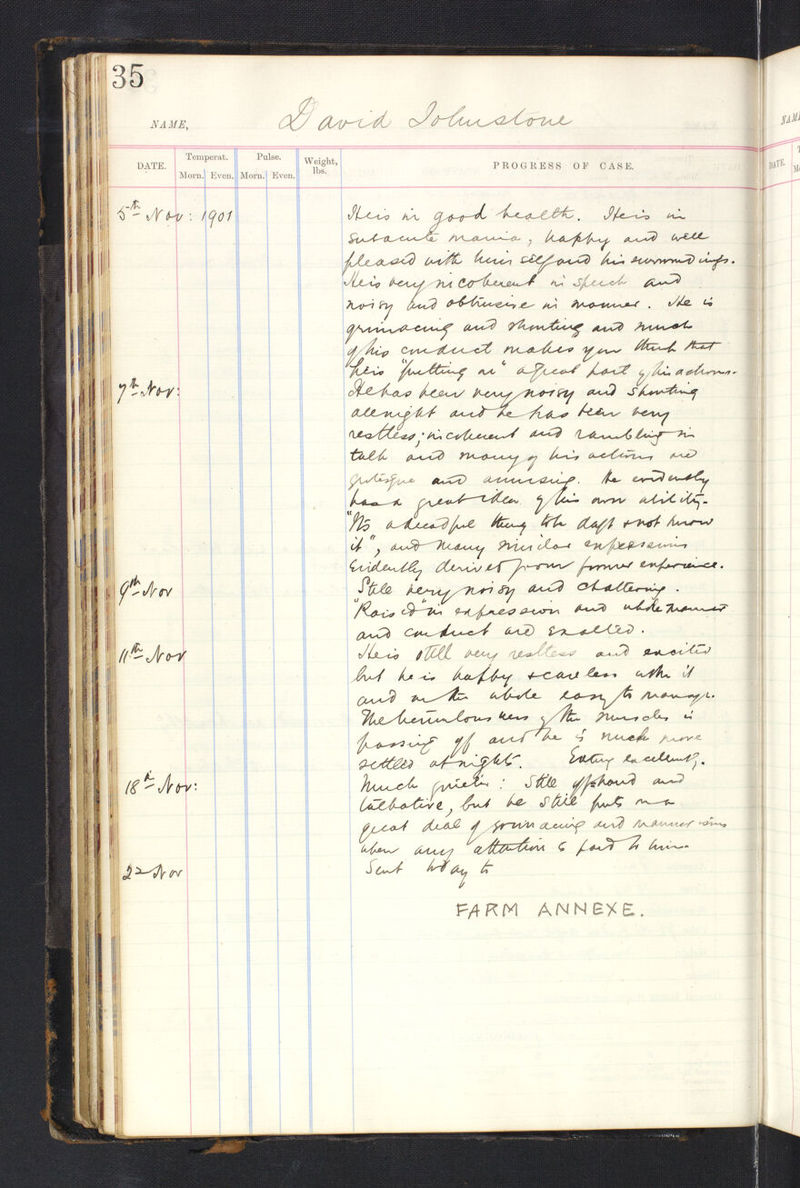 35
NAME, David Johnstone
DATE. Temperat. Morn. Even. Pulse. Morn. Even. Weight, lbs. PROGRESS OF CASE.
5th Nov: 1901 He is in good health. He is in
subacute mania, happy and well
pleased with himself and his surroundings.
He is very incoherent in speech and
noisy and obtrusive in manner. He is
grimacing and shouting and much
of his conduct makes you think that
he is "putting on" a great part of his actions.
7th Nov: He has been very noisy and shouting
all night and he has been very
restless; incoherent and rambling in
talk and many of his actions are
grotesque and amusing. He evidently
has a great idea of his own ability.
"It's a dreadful thing to be daft & not know
it", and many similar expressions
evidently derived from former experience.
9th Nov Still very noisy and chattering.
"Raised" in expression and whole manner
and conduct are exalted.
11th Nov He is still very restless and excited
but he is happy & careless with it
and on the whole easy to manage.
The tremulousness of the muscles is
passing off and he is much more
settled at nights. Eating excellently.
18th Nov: Much quieter: Still offhand and
talkative, but he still puts on a
great deal of grimacing and mannerisms
when any attention is paid to him.
22 Nov Sent today to
FARM ANNEXE.
NAME
DATE.